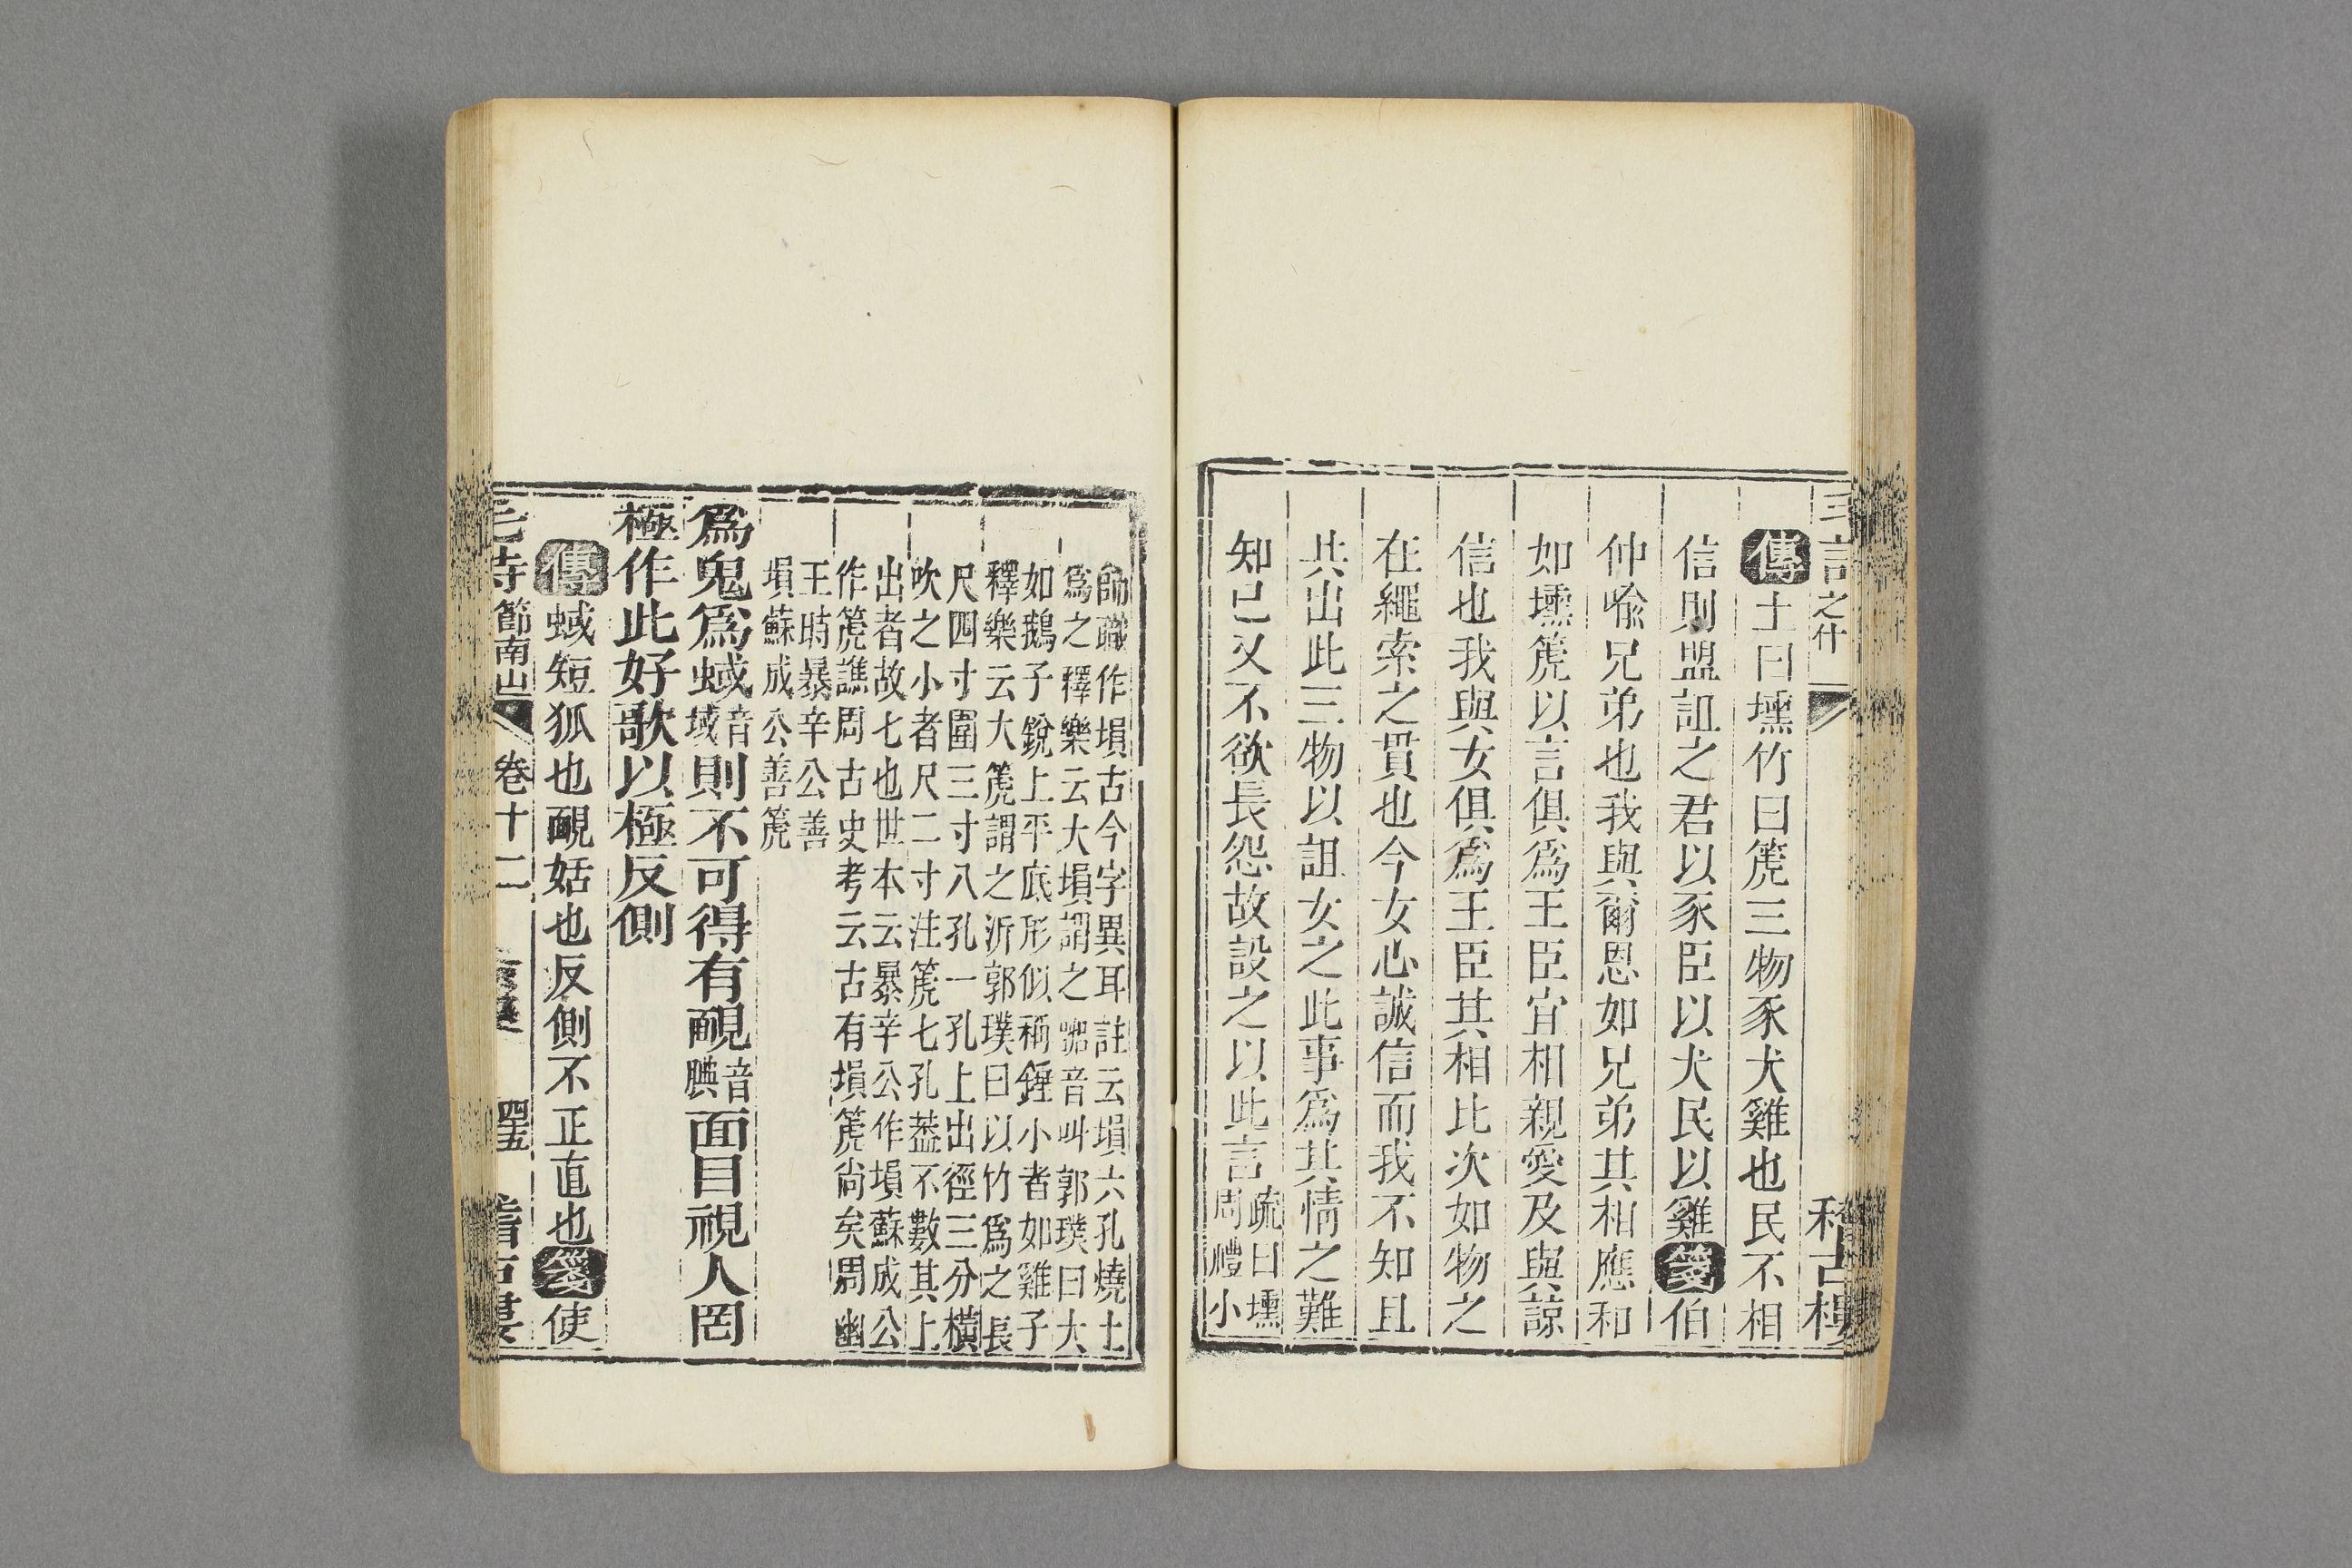 傳土曰壎竹曰篪三物豕犬雞也民不相
信則盟詛之君以豕臣以犬民以雞箋伯
仲喻兄弟也我與爾恩如兄弟其相應和
如壎篪以言俱爲王臣宜相親愛及與諒
信也我與女俱爲王臣其相比次如物之
在繩索之貫也今女心誠信而我不知且
共出此三物以詛女之此事爲其情之難
知已又不欲長怨故設之以此言
疏曰壎
周禮小
師職作塤古今字異耳註云塤六孔燒土
爲之釋樂云大塤謂之㗊音叫郭璞曰大
如鵝子銳上平底形似稱錘小者如雞子
釋樂云大篪謂之沂郭璞曰以竹爲之長
尺四寸圍三寸八孔一孔上出徑三分橫
吹之小者尺二寸注篪七孔葢不數其上
出者故七也世本云暴辛公作塤蘇成公
作篪譙周古史考云古有塤篪尚矣周幽
王時暴辛公善
塤蘇成公善篪
爲鬼爲蜮音域則不可得有靦音腆面目視人罔
極作此好歌以極反側
傳蜮短狐也靦姡也反側不正直也箋使
節南山 卷十二